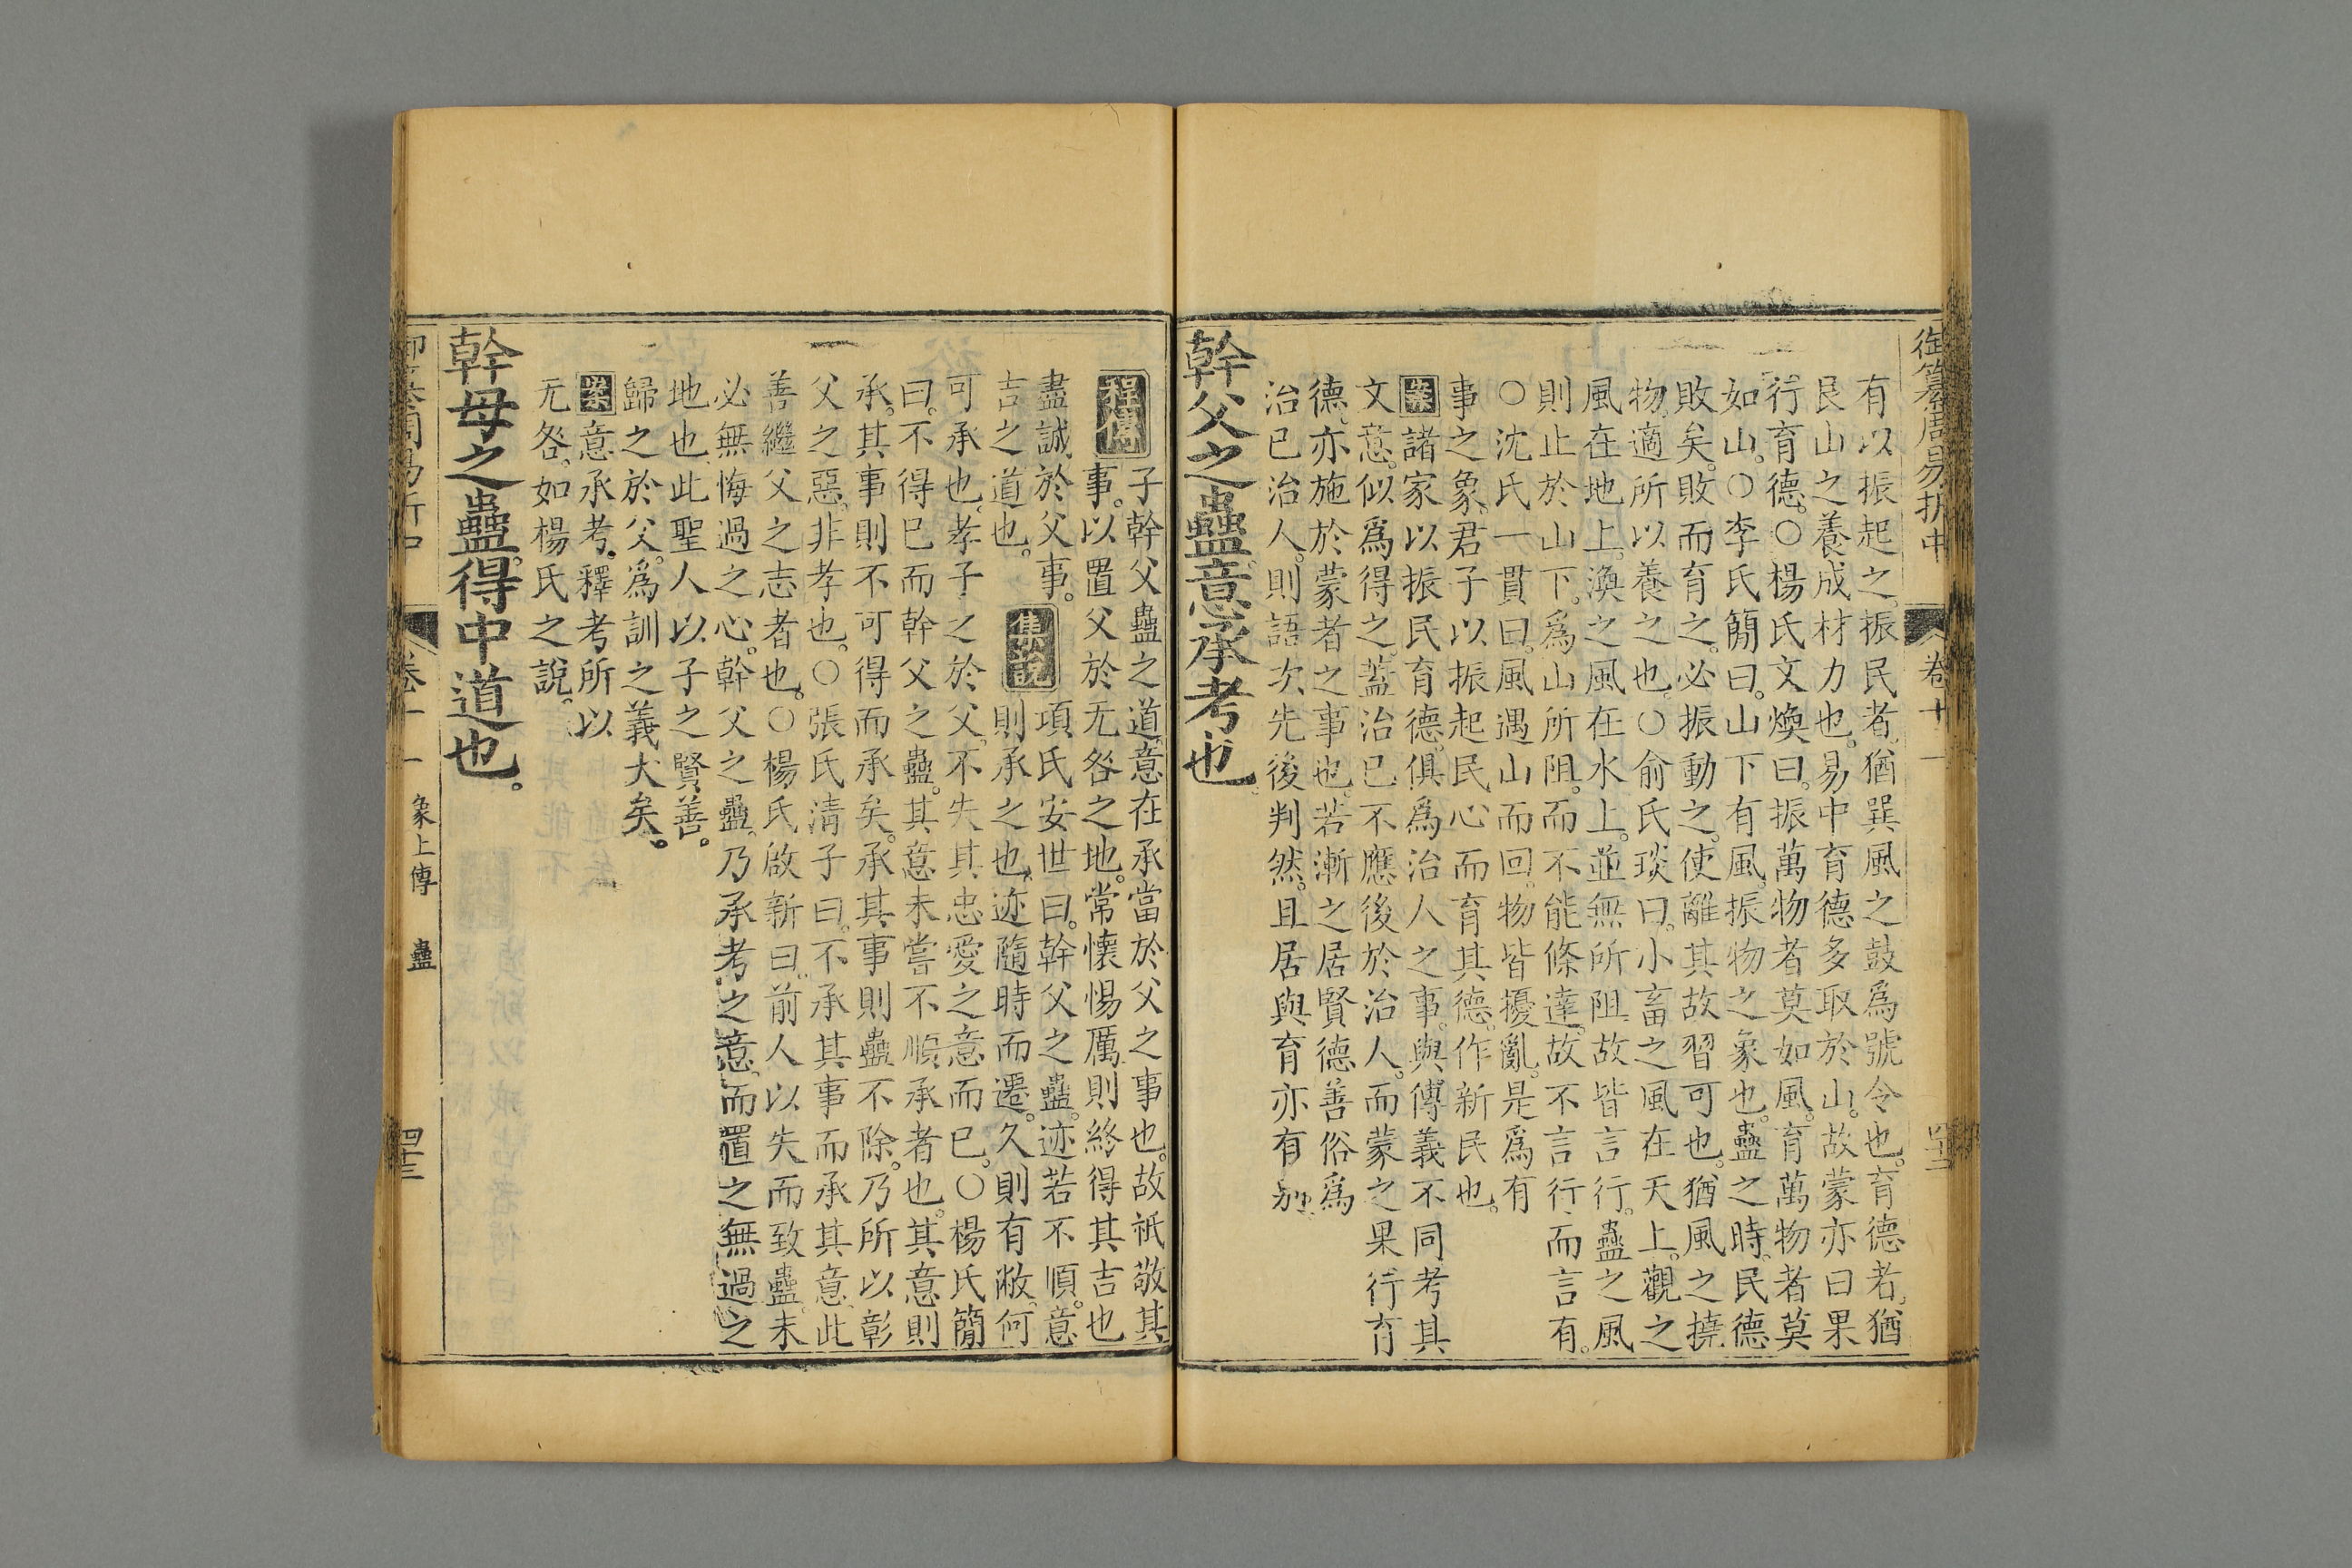 御纂周易折中
卷十一
有以振起之。振民者。猶巽風之鼓爲號令也。育德者。猶
艮山之養成材力也。易中育德多取於山。故蒙亦曰果
行育德。○楊氏文煥曰。振萬物者莫如風。育萬物者莫
如山。○李氏簡曰。山下有風。振物之象也。蠱之時。民德
敗矣。敗而育之。必振動之。使離其故習可也。猶風之撓
物。適所以養之也。○俞氏琰曰。小畜之風在天上。觀之
風在地上。渙之風在水上。並無所阻。故皆言行。蠱之風
則止於山下。爲山所阻。而不能條達。故不言行。而言有。
○沈氏一貫曰。風遇山而回。物皆擾亂。是爲有
事之象。君子以振起民心而育其德。作新民也。
案諸家以振民育德。俱爲治人之事。與傳義不同。考其
文意。似爲得之。蓋治已不應後於治人。而蒙之果行育
德。亦施於蒙者之事也。若漸之居賢德善俗。爲
治已治人。則語次先後判然。且居與育亦有別。
幹父之蠱。意承考也。
程傳
子幹父蠱之道。意在承當於父之事也。故祇敬其
事。以置父於无咎之地。常懷惕厲。則終得其吉也
盡誠於父事。
吉之道也。
集說
項氏安世曰。幹父之蠱。迹若不順。意
則承之也。迹隨時而遷。久則有敝。何
可承也。孝子之於父。不失其忠愛之意而已。○楊氏簡
曰。不得已而幹父之蠱。其意未嘗不順承者也。其意則
承。其事則不可得而承矣。承其事則蠱不除。乃所以彰
父之惡。非孝也。○張氏清子曰。不承其事而承其意。此
善繼父之志者也。○楊氏啟新曰。前人以失而致蠱。未
必無悔過之心。幹父之蠱。乃承考之意。而置之無過之
地也。此聖人以子之賢善。
歸之於父。爲訓之義大矣。
案意承考。釋考所以
无咎。如楊氏之說。
幹母之蠱。得中道也。
象上傳
蠱
四十三